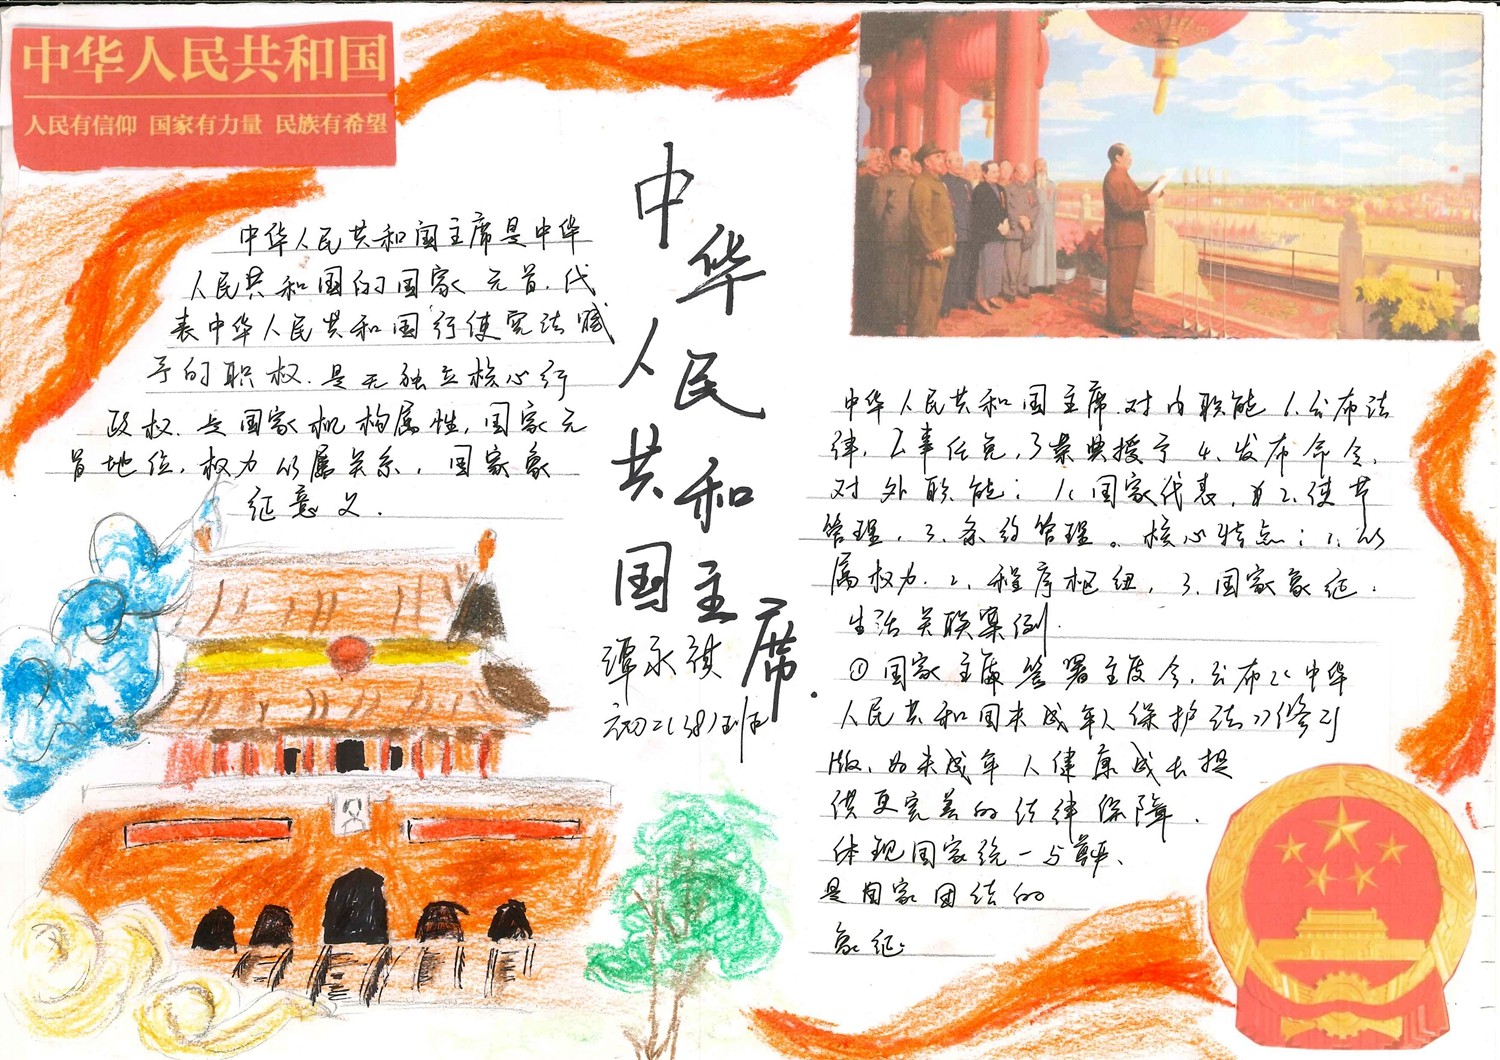 中华人民共和国
人民有信仰 国家有力量 民族有希望
中华人民共和国主席
谭永祺
初二(38)班
中华人民共和国主席是中华
人民共和国的国家元首,代
表中华人民共和国行使宪法赋
予的职权.是无独立核心行
政权.是国家机构属性,国家元
首地位,权力从属关系,国家象
征意义.
中华人民共和国主席.对内职能 1.公布法
律,2.事任免,3荣典授予 4.发布命令.
对外职能:1.国家代表,2.使节
管理,3.条约管理。核心特点:1.从
属权力.2.程序枢纽,3.国家象征.
生活关联案例.
①国家主席签署主席令,公布《中华
人民共和国未成年人保护法》修订
版,为未成年人健康成长提
供更完善的法律保障.
体现国家统一与尊严、
是国家团结的
象征。